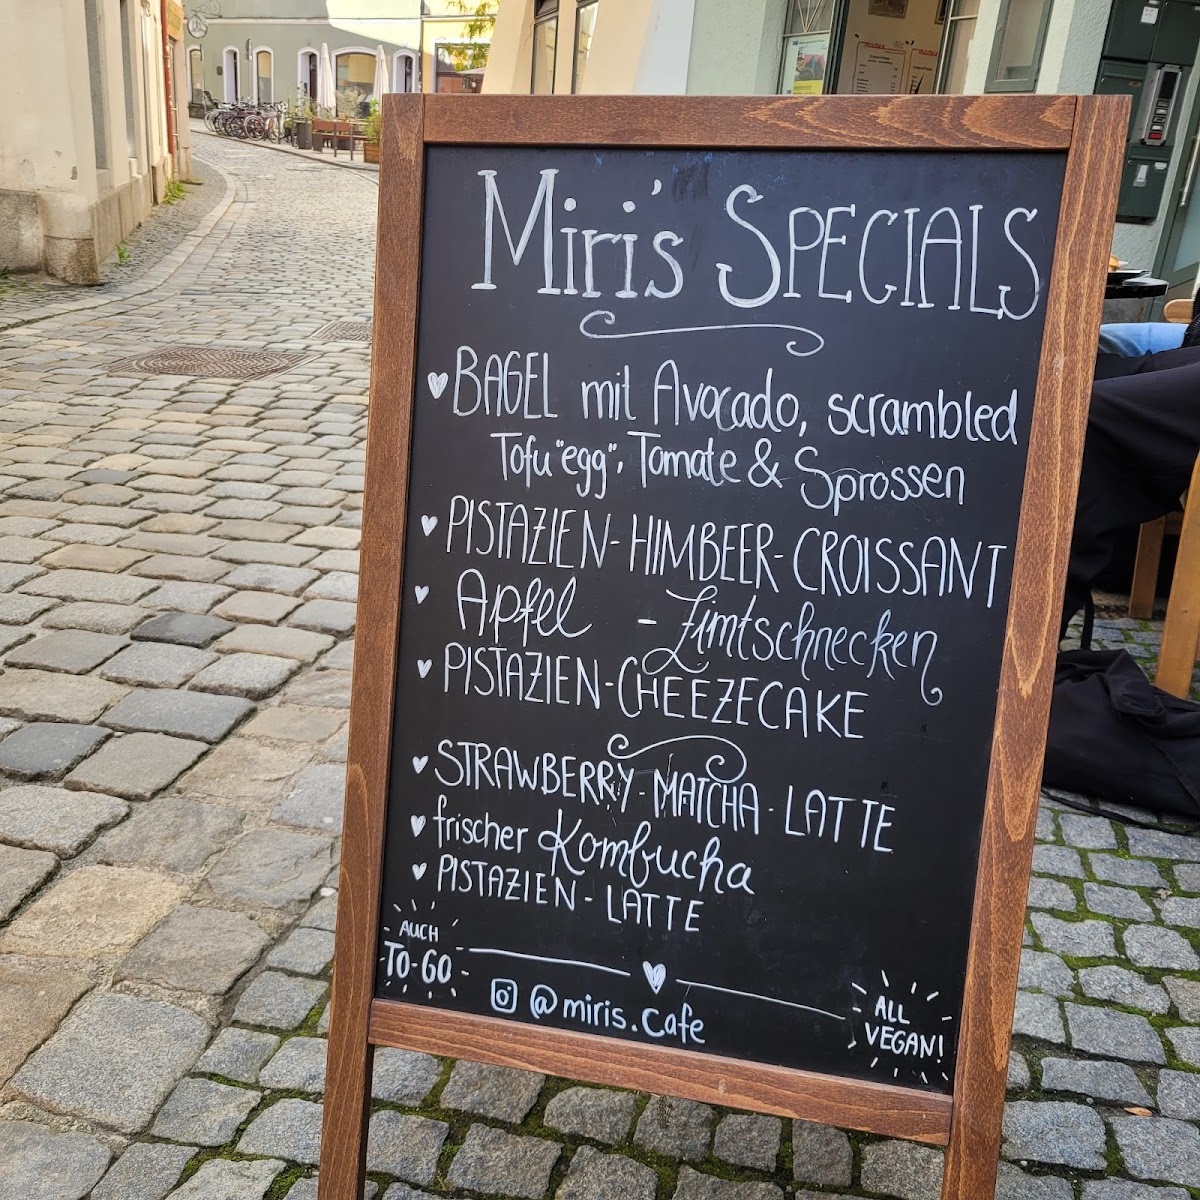 Miri's SPECIALS
BAGEL mit Avocado, scrambled
Tofu "egg", Tomate & Sprossen
PISTAZIEN-HIMBEER-CROISSANT
Apfel - Zimtschnecken
PISTAZIEN-CHEEZECAKE
STRAWBERRY-MATCHA-LATTE
frischer Kombucha
PISTAZIEN-LATTE
AUCH
TO-GO
@miris.cafe
ALL
VEGAN!